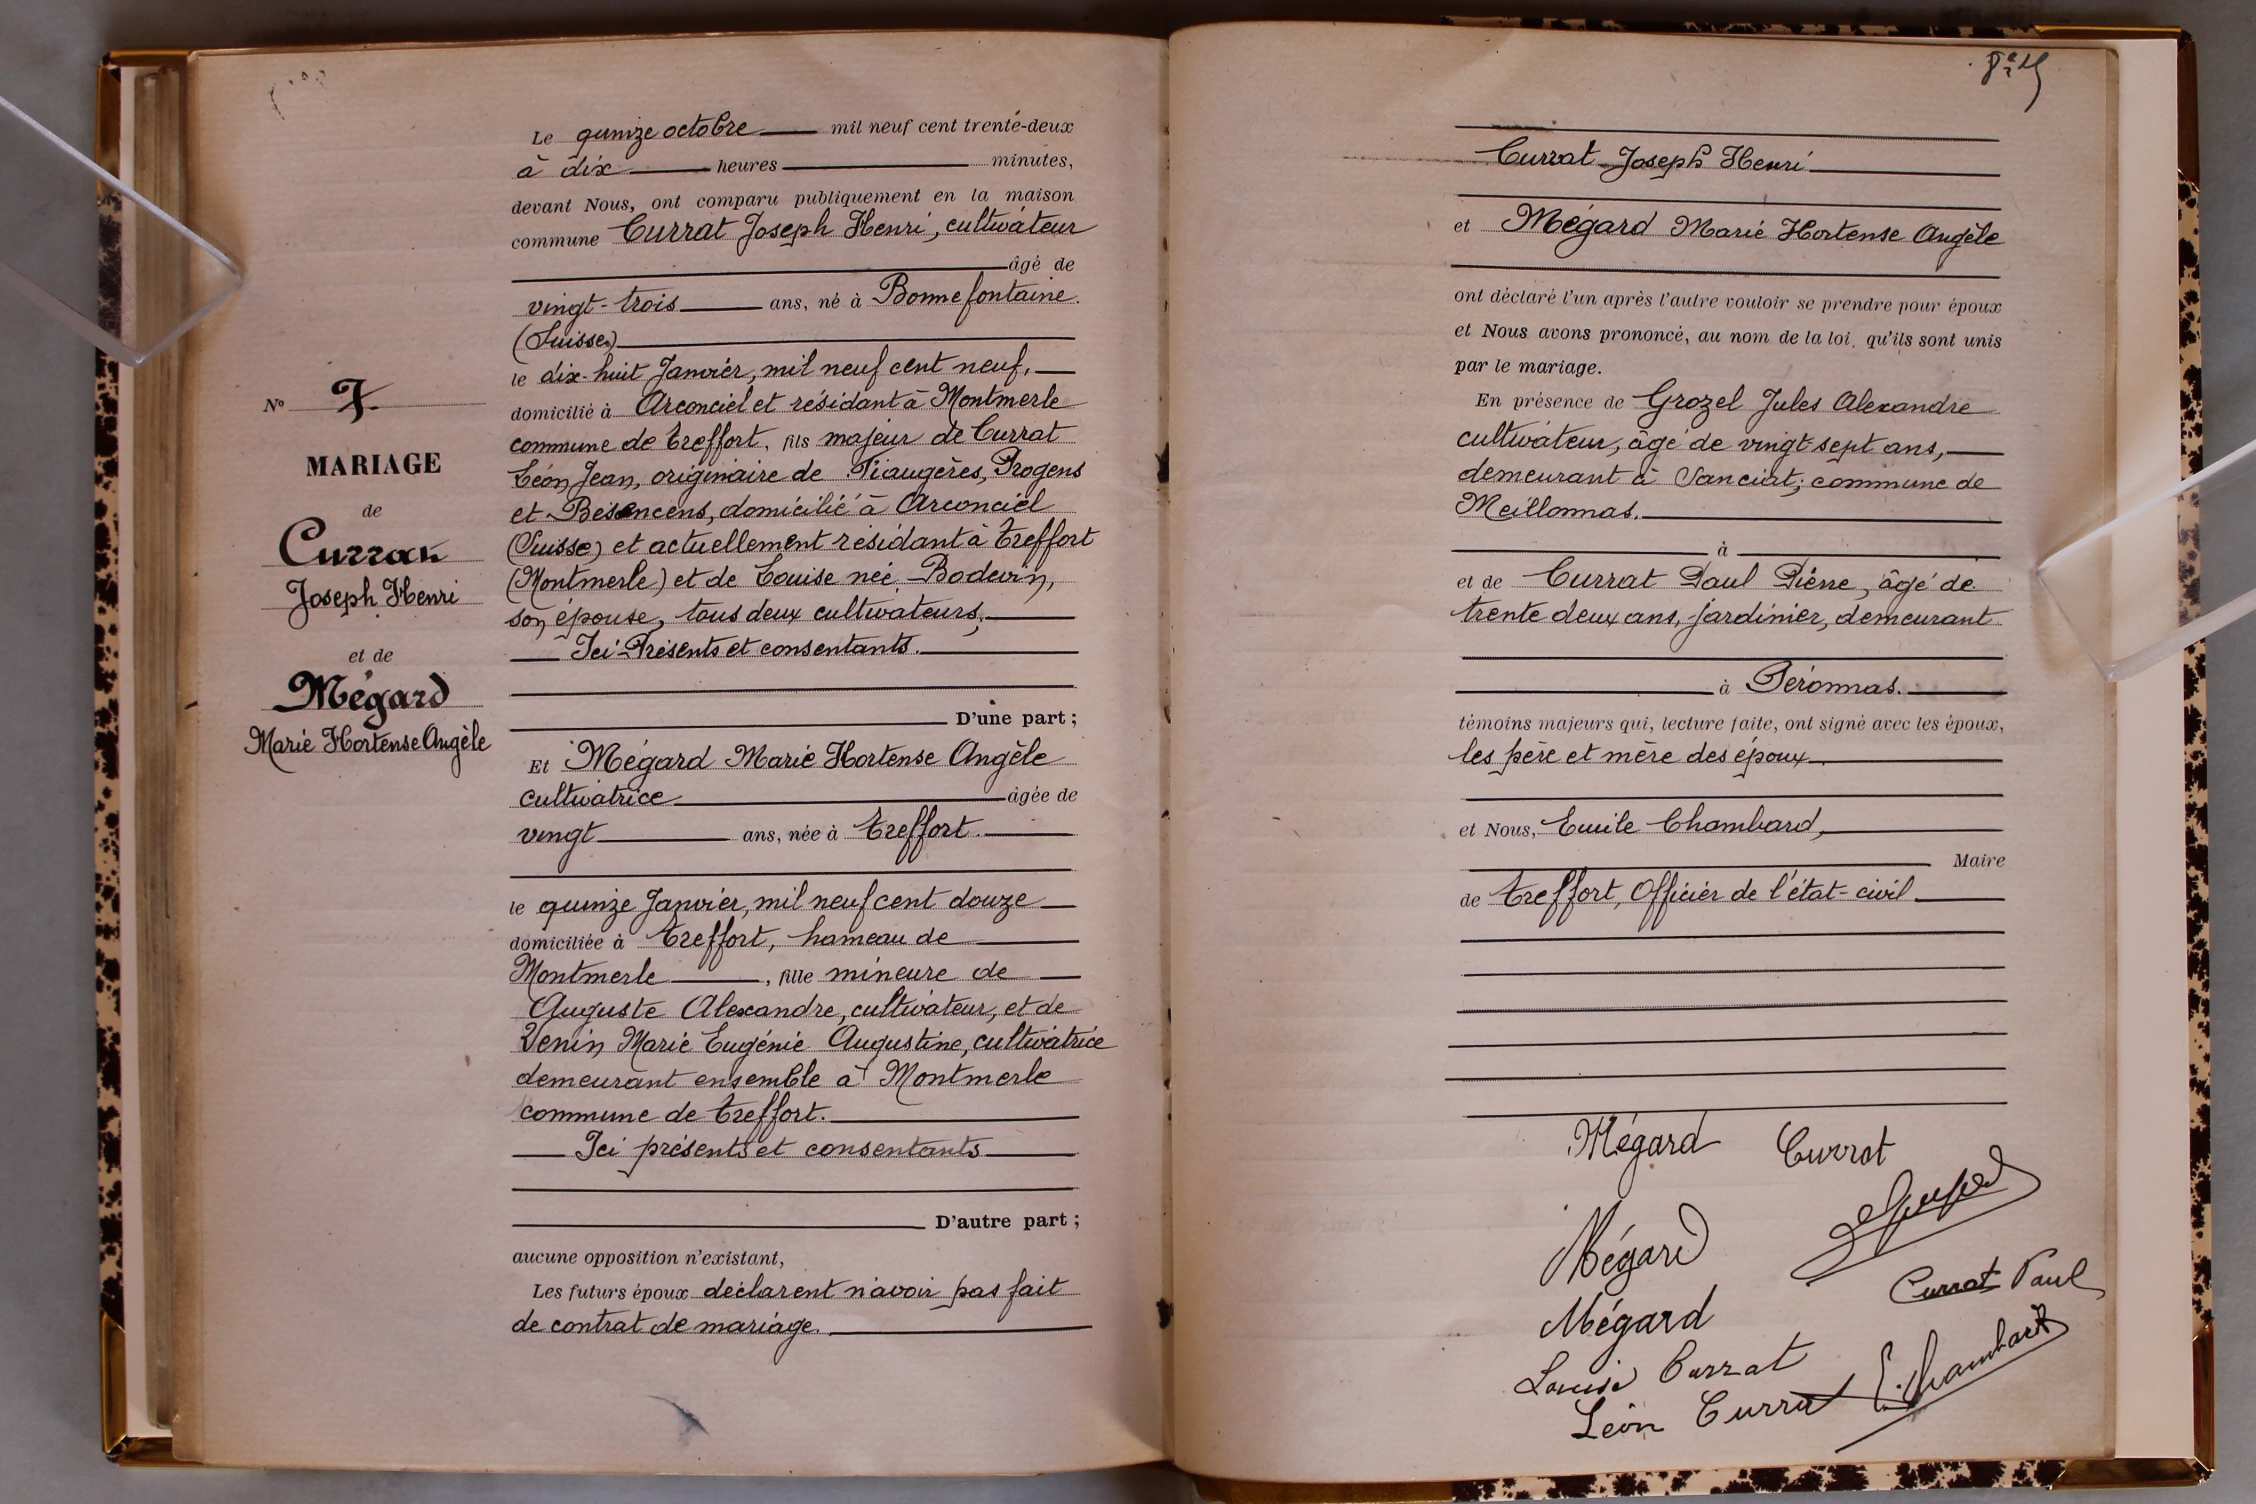 Le quinze octobre mil neuf cent trente-deux
à dix heures minutes,
devant Nous, ont comparu publiquement en la maison
commune Currat Joseph Henri, cultivateur
âgé de
vingt-trois ans, né à Bonnefontaine
(Suisse)
le dix-huit Janvier, mil neuf cent neuf,
domicilié à Arconciel et résidant à Montmerle
commune de Treffort, fils majeur de Currat
Léon Jean, originaire de Fiaugères, Progens
et Besencens, domicilié à Arconciel
(Suisse) et actuellement résidant à Treffort
(Montmerle) et de Louise née Bodevin,
son épouse, tous deux cultivateurs,
Ici Présents et consentants.
D'une part ;
Nº 7.
MARIAGE
de
Currat
Joseph Henri
et de
Mégard
Marie Hortense Angèle
Et Mégard Marie Hortense Angèle
cultivatrice âgée de
vingt ans, née à Treffort.
le quinze Janvier, mil neuf cent douze
domiciliée à Treffort, hameau de
Montmerle, fille mineure de
Auguste Alexandre, cultivateur, et de
Venin Marie Eugénie Augustine, cultivatrice
demeurant ensemble à Montmerle
commune de Treffort.
Ici présents et consentants
D'autre part ;
aucune opposition n'existant,
Les futurs époux déclarent n'avoir pas fait
de contrat de mariage.
Currat Joseph Henri
et Mégard Marie Hortense Angèle
ont déclaré l'un après l'autre vouloir se prendre pour époux
et Nous avons prononcé, au nom de la loi, qu'ils sont unis
par le mariage.
En présence de Grozel Jules Alexandre
cultivateur, âgé de vingt-sept ans,
demeurant à Sanciat, commune de
Meillonnas.
à
et de Currat Paul Pierre, âgé de
trente deux ans, jardinier, demeurant
à Péronnas.
témoins majeurs qui, lecture faite, ont signé avec les époux,
les père et mère des époux
et Nous, Emile Chambard,
Maire
de Treffort, Officier de l'état-civil
Mégard Currat
Mégard
Currat Paul
Mégard
Louise Currat
Léon Currat E. Chambard